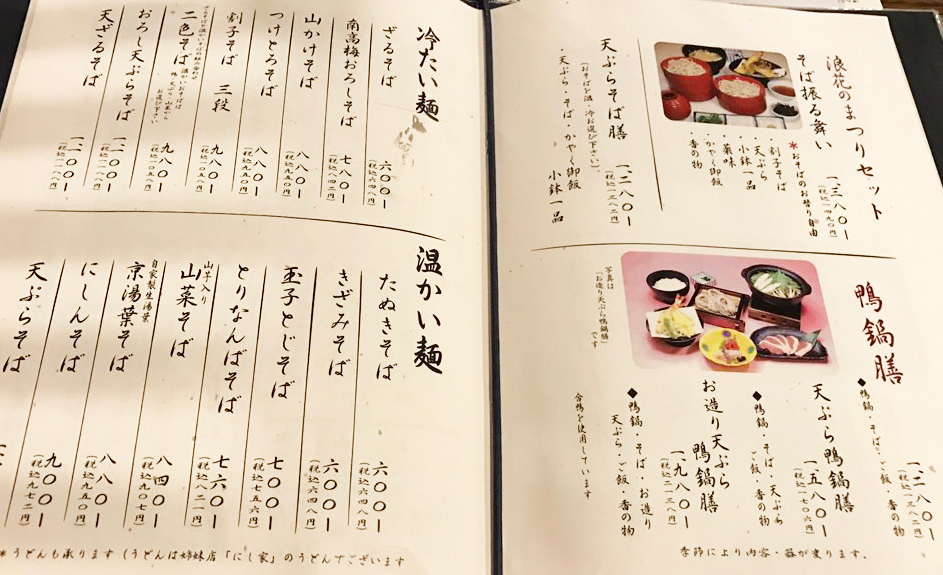 浪花のまつりセット
そば振る舞い
一、三八〇ー
(税込一四九〇円)
*おそばのお替り自由
・割子そば
・天ぷら
・小鉢一品
・薬味
・かやく御飯
・香の物
天ぷらそば膳
一、二八〇ー
(税込一三八二円)
(おそばを温・冷お選び下さい)
・天ぷら・そば・かやく御飯
小鉢一品
鴨鍋膳
一、二八〇ー
(税込一三八二円)
◆鴨鍋・そば・ご飯・香の物
天ぷら鴨鍋膳
一、五八〇ー
(税込一七〇六円)
◆鴨鍋・そば・天ぷら
ご飯・香の物
お造り天ぷら
鴨鍋膳
一、九八〇ー
(税込二一三八円)
◆鴨鍋・そば・お造り
天ぷら・ご飯・香の物
合鴨を使用しています
写真は
「お造り天ぷら鴨鍋膳」
です
季節により内容・器が変ります.
冷たい麺
ざるそば
六〇〇ー
(税込六四八円)
南高梅おろしそば
七八〇ー
(税込八四二円)
山かけそば
八八〇ー
(税込九五〇円)
つけとろそば
八八〇ー
(税込九五〇円)
割子そば 三段
九八〇ー
(税込一〇五八円)
二色そば
ざるそばと温かいおそばの組み合わせ
温かいおそばは
鴨・天ぷら・山菜から
お選び下さい
九八〇ー
(税込一〇五八円)
おろし天ぷらそば
一、一〇〇ー
(税込一一八八円)
天ざるそば
一、一〇〇ー
(税込一一八八円)
温かい麺
たぬきそば
六〇〇ー
(税込六四八円)
きざみそば
六〇〇ー
(税込六四八円)
玉子とじそば
七〇〇ー
(税込七五六円)
とりなんばそば
七六〇ー
(税込八二一円)
山芋入り
山菜そば
八四〇ー
(税込九〇七円)
自家製生湯葉
京湯葉そば
八八〇ー
(税込九五〇円)
にしんそば
九〇〇ー
(税込九七二円)
天ぷらそば
*うどんも承ります(うどんは姉妹店「にし家」のうどんでございます